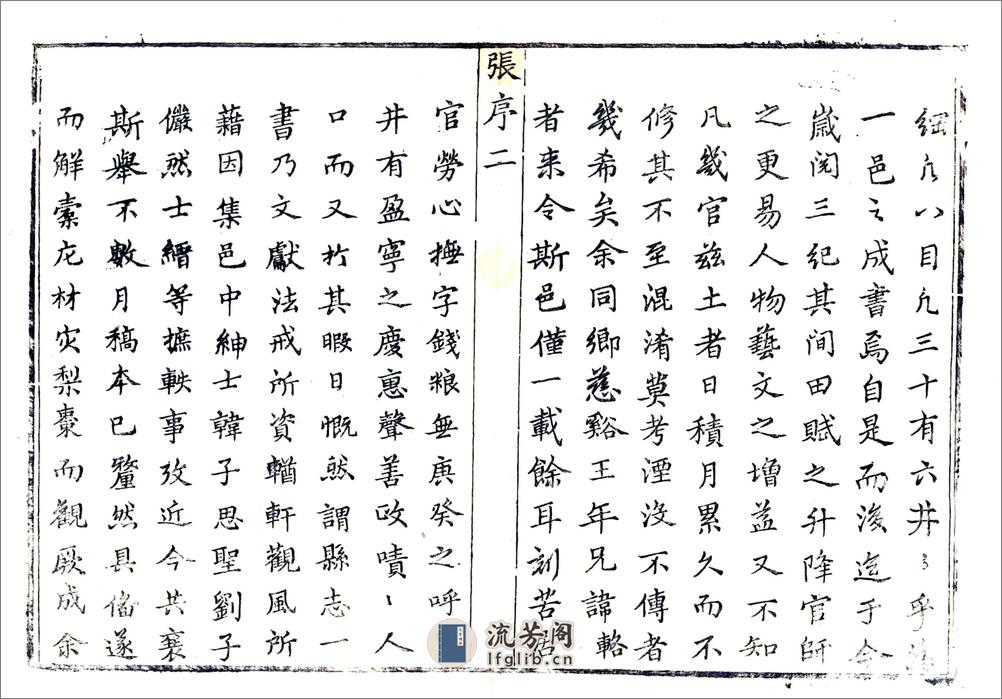 綱凡八目凡三十有六井々乎
一邑之成書焉自是而後迄于今
歲閱三紀其间田賦之升降官師
之更易人物藝文之增益又不知
凡幾官茲土者日積月累久而不
修其不至混淆莫考湮沒不傳者
幾希矣余同鄉慈谿王年兄諱輅
者来令斯邑僅一載餘耳刻苦
張序二
官勞心撫字錢粮無庚癸之呼
井有盈寧之慶惠聲善政嘖〻人
口而又於其暇日慨然謂縣志一
書乃文獻法戒所資輶軒觀風所
藉因集邑中紳士韓子思聖劉子
儼然士縉等摭軼事攷近今共襄
斯舉不數月稿本已釐然具俻遂
而解橐庀材灾梨棗而觀厥成余
流芳阁
lfglib.cn